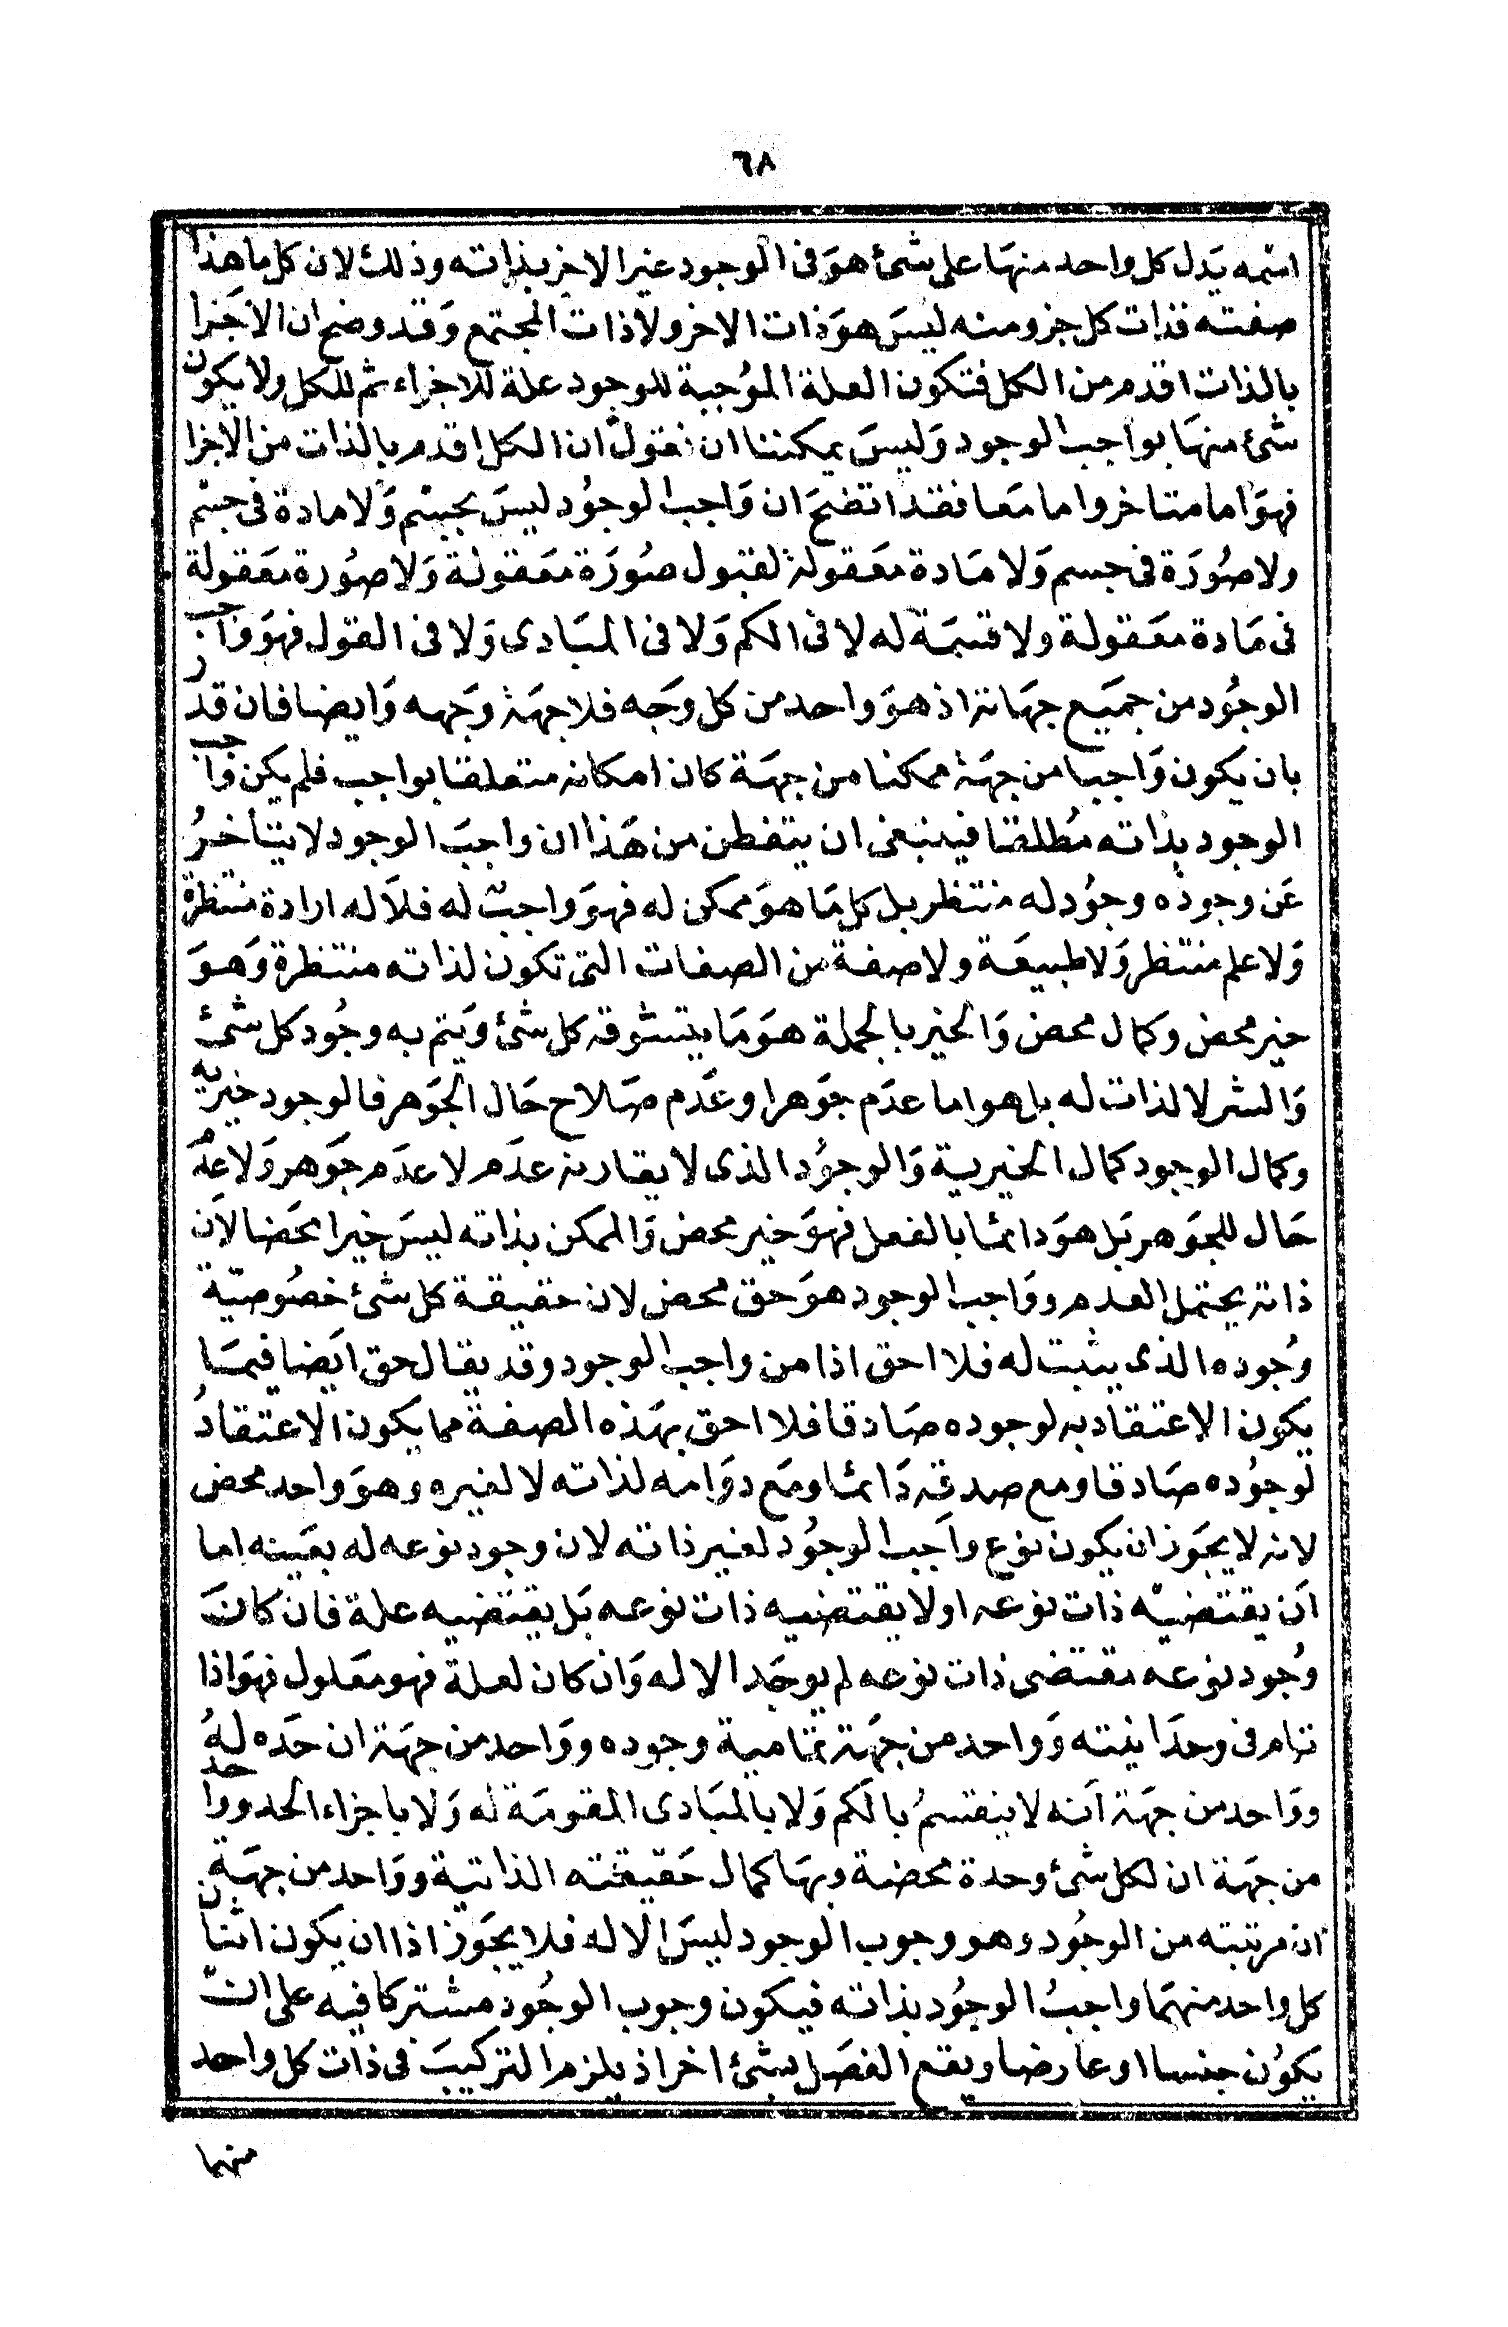 ٦٨
اسمه يدل كل واحد منها على شئ هو فى الوجود غير الاخر بذاته وذلك لان كل ما هذا
صفته فذات كل جزو منه ليس هو ذات الاخر ولا ذات المجتمع وقد وضح ان الاجزا
بالذات اقدم من الكل فتكون العلة الموجبة للوجود علة للاجزاء ثم للكل ولا يكون
شئ منها بواجب الوجود وليس يمكننا ان نقول ان الكل اقدم بالذات من الاجزا
فهو اما متاخر واما معا فقد اتضح ان واجب الوجود ليس بجسم ولا مادة فى جسم
ولا صورة فى جسم ولا مادة معقولة لقبول صورة معقولة ولا صورة معقولة
فى مادة معقولة ولا قسمة له لا فى الكم ولا فى المبادى ولا فى القول فهو واجب
الوجود من جميع جهاته اذ هو واحد من كل وجه فلا جهة وجهه وايضا فان قدر
بان يكون واجبا من جهة ممكنا من جهة كان امكانه متعلقا بواجب فلم يكن واجب
الوجود بذاته مطلقا فينبغى ان يتفطن من هذا ان واجب الوجود لا يتاخر
عن وجوده وجود له منتظر بل كل ما هو ممكن له فهو واجب له فلا له ارادة منتظرة
ولا علم منتظر ولا طبيعة ولا صفة من الصفات التى تكون لذاته منتظرة وهو
خير محض وكمال محض والخير بالجملة هو ما يتشوقه كل شئ ويتم به وجود كل شئ
والشر لا لذات له بل هو اما عدم جوهر او عدم صلاح حال الجوهر فالوجود خيرية
وكمال الوجود كمال الخيرية والوجود الذى لا يقارنه عدم لا عدم جوهر ولا عدم
حال للجوهر بل هو دائما بالفعل فهو خير محض والممكن بذاته ليس خيرا محضا لان
ذاته يحتمل العدم وواجب الوجود هو حق محض لان حقيقة كل شئ خصوصية
وجوده الذى يثبت له فلا احق اذا من واجب الوجود وقد يقال حق ايضا فيما
يكون الاعتقاد به لوجوده صادقا فلا احق بهذه الصفة مما يكون الاعتقاد
لوجوده صادقا ومع صدقه دائما ومع دوامه لذاته لا لغيره وهو واحد محض
لانه لا يجوز ان يكون نوع واجب الوجود لغير ذاته لان وجود نوعه له بعينه اما
ان يقتضيه ذات نوعه او لا يقتضيه ذات نوعه بل يقتضيه علة فان كان
وجود نوعه مقتضى ذات نوعه لم يوجد الا له وان كان لعلة فهو معلول فهو اذا
تام فى وحدانيته وواحد من جهة تمامية وجوده وواحد من جهة ان حده له
وواحد من جهة انه لا ينقسم بالكم ولا بالمبادى المقومة له ولا باجزاء الحد وواحد
من جهة ان لكل شئ وحدة محضة وبها كمال حقيقته الذاتية وواحد من جهة
ان مرتبته من الوجود وهو وجوب الوجود ليس الا له فلا يجوز اذا ان يكون اثنان
كل واحد منهما واجب الوجود بذاته فيكون وجوب الوجود مشتركا فيه على ان
يكون جنسا او عارضا ويقع الفصل بشئ اخر اذ يلزم التركيب فى ذات كل واحد
منهما